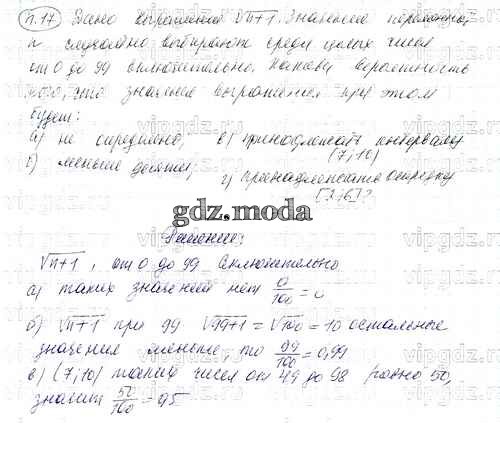 п.17) Дано выражение √n+1. Значение переменной
n случайно выбирают среди целых чисел
от 0 до 99 включительно. Какова вероятность
того, что значение выражения при этом
будет:
а) не определено, в) принадлежать интервалу
(7;10)
б) меньше десяти; г) принадлежать отрезку
[2;6]?
gdz.moda
Решение:
√n+1, от 0 до 99 включительно
а) таких значений нет 0/100 = 0
б) √n+1 при 99 √99+1 = √100 = 10 остальные
значения меньше, то 99/100 = 0,99
в) (7;10) таких чисел от 49 до 98 равно 50,
значит 50/100 = 0,5